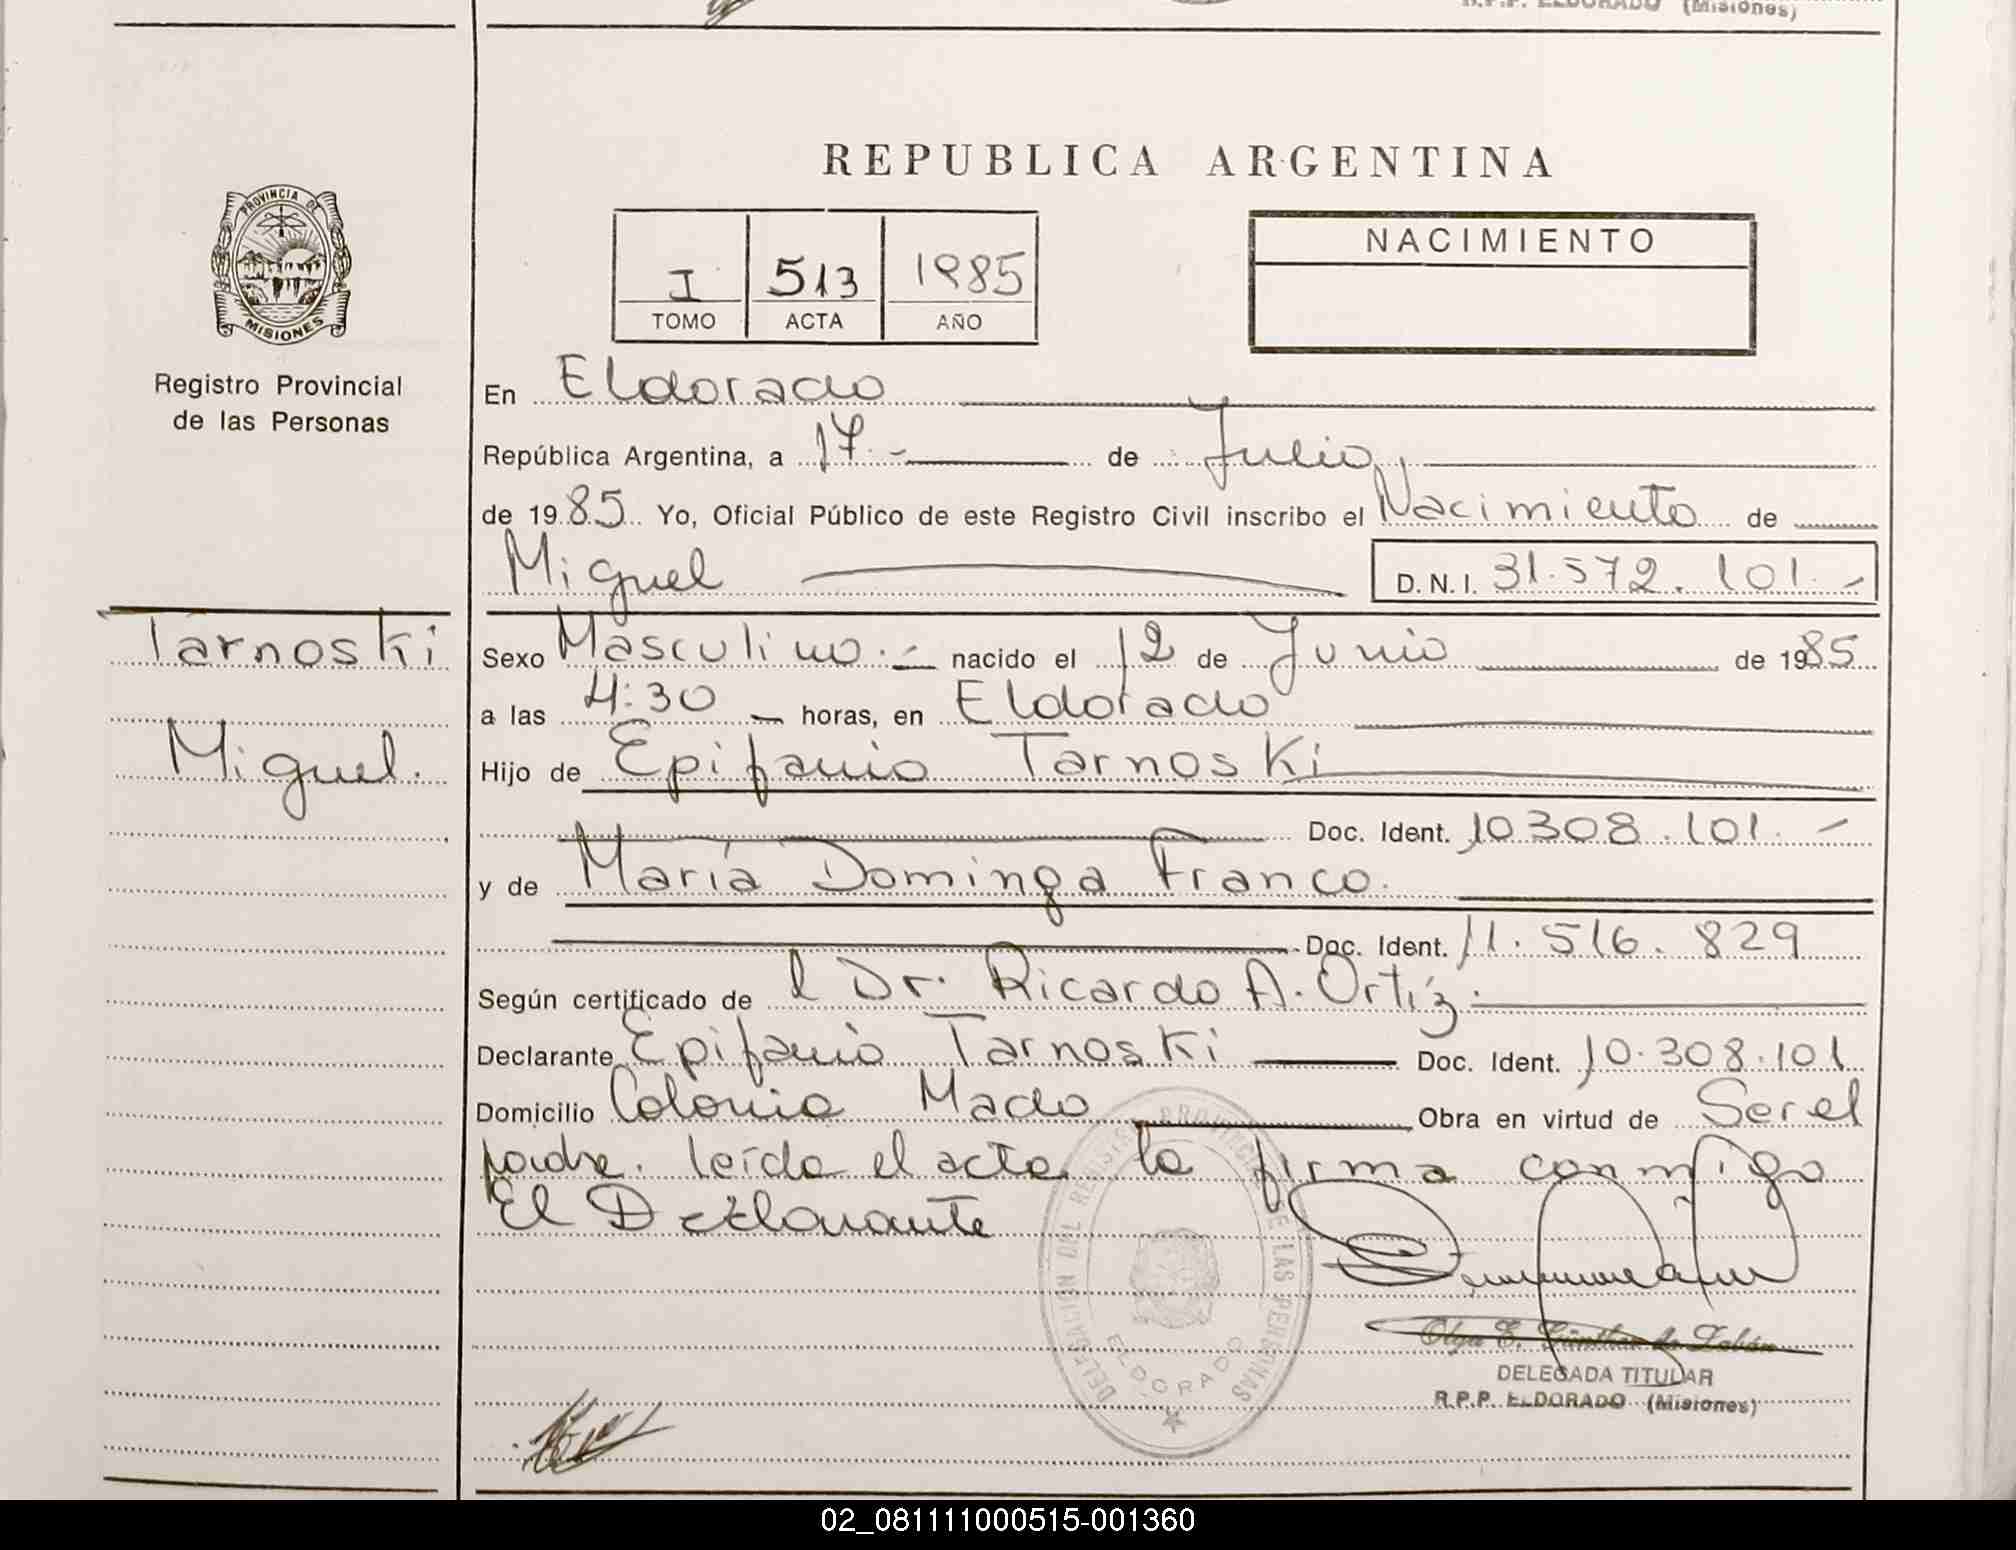 R.P.P. ELDORADO (Misiones)
REPUBLICA ARGENTINA
PROVINCIA DE
MISIONES
Registro Provincial
de las Personas
I 513 1985
TOMO ACTA AÑO
NACIMIENTO
En Eldorado
República Argentina, a 17.- de Julio,
de 1985 Yo, Oficial Público de este Registro Civil inscribo el Nacimiento de
Miguel D.N.I. 31.572.101.-
Tarnoski
Miguel.
Sexo Masculino.- nacido el 12 de Junio de 1985
a las 4:30 horas, en Eldorado
Hijo de Epifanio Tarnoski
Doc. Ident. 10.308.101.-
y de María Dominga Franco.
Doc. Ident. 11.516.829
Según certificado de l Dr. Ricardo A. Ortíz.
Declarante Epifanio Tarnoski Doc. Ident. 10.308.101
Domicilio Colonia Mado Obra en virtud de Ser el
padre. leída el acta la firma conmigo
El Declarante
DELEGACION DEL REGISTRO PROVINCIAL DE LAS PERSONAS
ELDORADO
Olga E. Günther de Zabán
DELEGADA TITULAR
R.P.P. ELDORADO (Misiones)
02_081111000515-001360